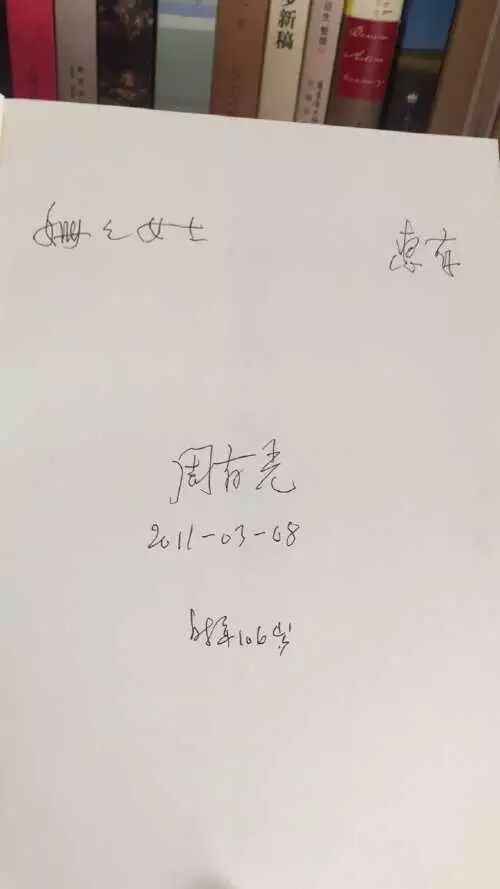 新稿
姗々女士 惠存
周有光
2011-03-08
时年106岁